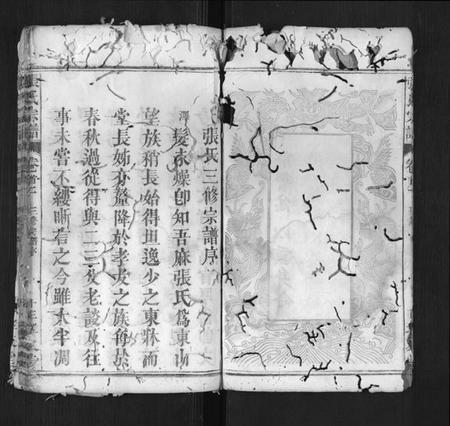 張氏三修宗譜序
澤髮未燥即知吾麻張氏為東山
望族稍長始得坦逸少之東牀而
堂長姊亦釐降於孝友之族每於
春秋過從得與二三父老談及往
事未嘗不縷晰言之今雖大半凋